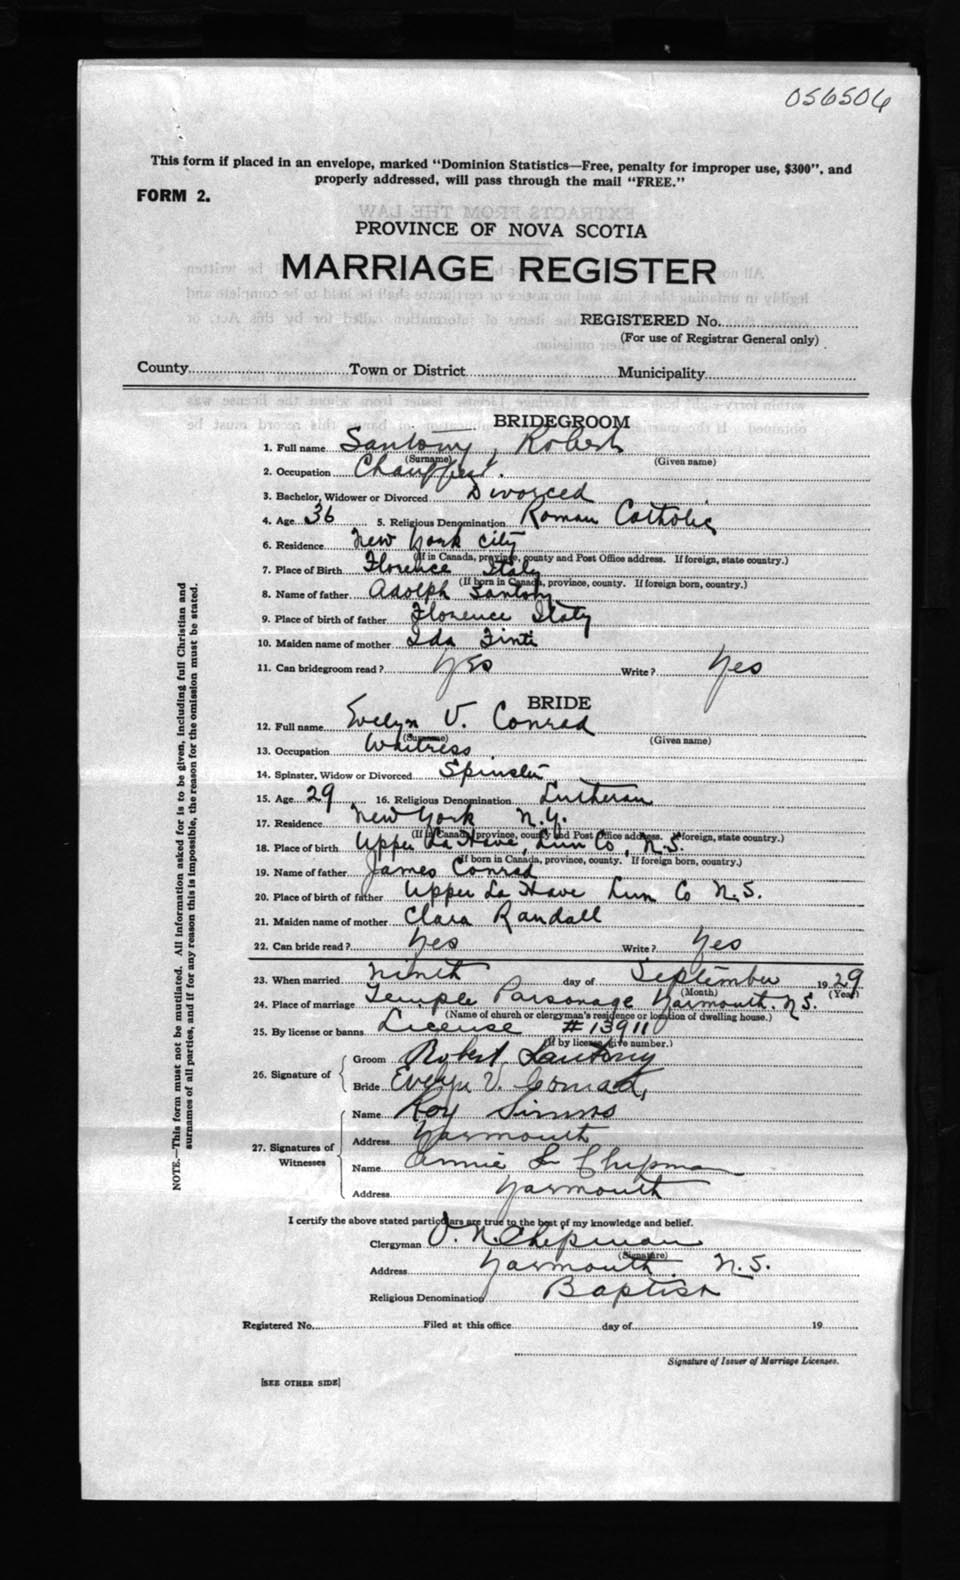 056506
This form if placed in an envelope, marked "Dominion Statistics—Free, penalty for improper use, $300", and
properly addressed, will pass through the mail "FREE."
FORM 2.
PROVINCE OF NOVA SCOTIA
MARRIAGE REGISTER
REGISTERED No.
(For use of Registrar General only)
County Town or District Municipality
BRIDEGROOM
1. Full name Santony, Robert
(Surname) (Given name)
2. Occupation
3. Bachelor, Widower or Divorced Divorced
4. Age 36 5. Religious Denomination Roman Catholic
6. Residence New York City
(If in Canada, province, county and Post Office address. If foreign, state country.)
7. Place of Birth Florence Italy
(If born in Canada, province, county. If foreign born, country.)
8. Name of father Adolph Santony
9. Place of birth of father Florence Italy
10. Maiden name of mother Ida Finti
11. Can bridegroom read? Yes Write? Yes
BRIDE
12. Full name Evelyn V. Conrad
(Surname) (Given name)
13. Occupation Waitress
14. Spinster, Widow or Divorced Spinster
15. Age 29 16. Religious Denomination Lutheran
17. Residence New York N.Y.
(If in Canada, province, county and Post Office address. If foreign, state country.)
18. Place of birth Upper La Have, Lun Co, N.S.
(If born in Canada, province, county. If foreign born, country.)
19. Name of father James Conrad
20. Place of birth of father Upper La Have Lun Co N.S.
21. Maiden name of mother Clara Randall
22. Can bride read? Yes Write? Yes
23. When married Ninth day of September 1929
(Month) (Year)
24. Place of marriage Temple Parsonage Yarmouth, N.S.
(Name of church or clergyman's residence or location of dwelling house.)
25. By license or banns License #13911
(If by license, give number.)
26. Signature of
Groom Robert Santony
Bride Evelyn V. Conrad,
27. Signatures of Witnesses
Name Roy Simms
Address Yarmouth
Name Annie L Chipman
Address Yarmouth
I certify the above stated particulars are true to the best of my knowledge and belief.
Clergyman O. N. Chipman
(Signature)
Address Yarmouth N.S.
Religious Denomination Baptist
Registered No. Filed at this office day of 19
Signature of Issuer of Marriage Licenses.
[SEE OTHER SIDE]
NOTE.—This form must not be mutilated. All information asked for is to be given, including full Christian and
surnames of all parties, and if for any reason this is impossible, the reason for the omission must be stated.